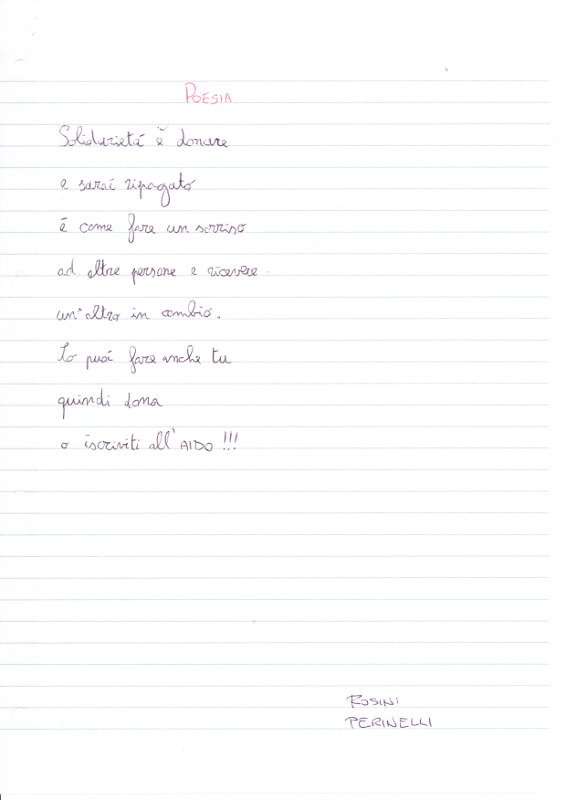 POESIA
Solidarietá è donare
e sarai ripagato
é come fare un sorriso
ad altre persone e ricevere
un'altro in cambio.
Lo puoi fare anche tu
quindi dona
o iscriviti all'AIDO !!!
ROSINI
PERINELLI